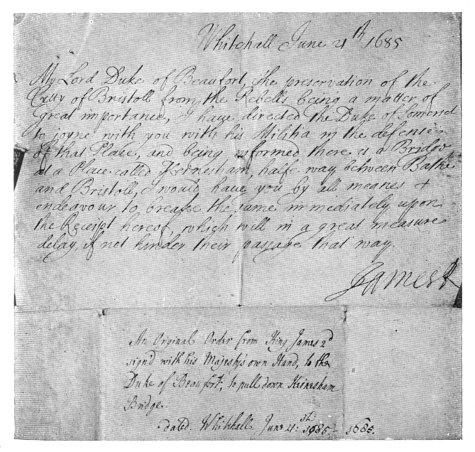 Whitehall June 21th 1685
My Lord Duke of Beaufort, the preservation of the
Citty of Bristoll from the Rebells being a matter of
Great importance, I have directed the Duke of Somerset
to joyne with you with his Militia in the defense
of that Place, and being informed there is a Bridge
at a Place called between Bathe
and Bristoll, I would have you by all meanes
endeavour to breake the same immediately upon
the Receipt hereof, which will in a great measure
delay, if not hinder their passage that way.
James R
An Orginal Order from King James 2d
signd with his Majestys own Hand, to the
Duke of Beaufort, to pull down Keinesham
Bridge.
dated Whitehall June 21st 1685 1685.